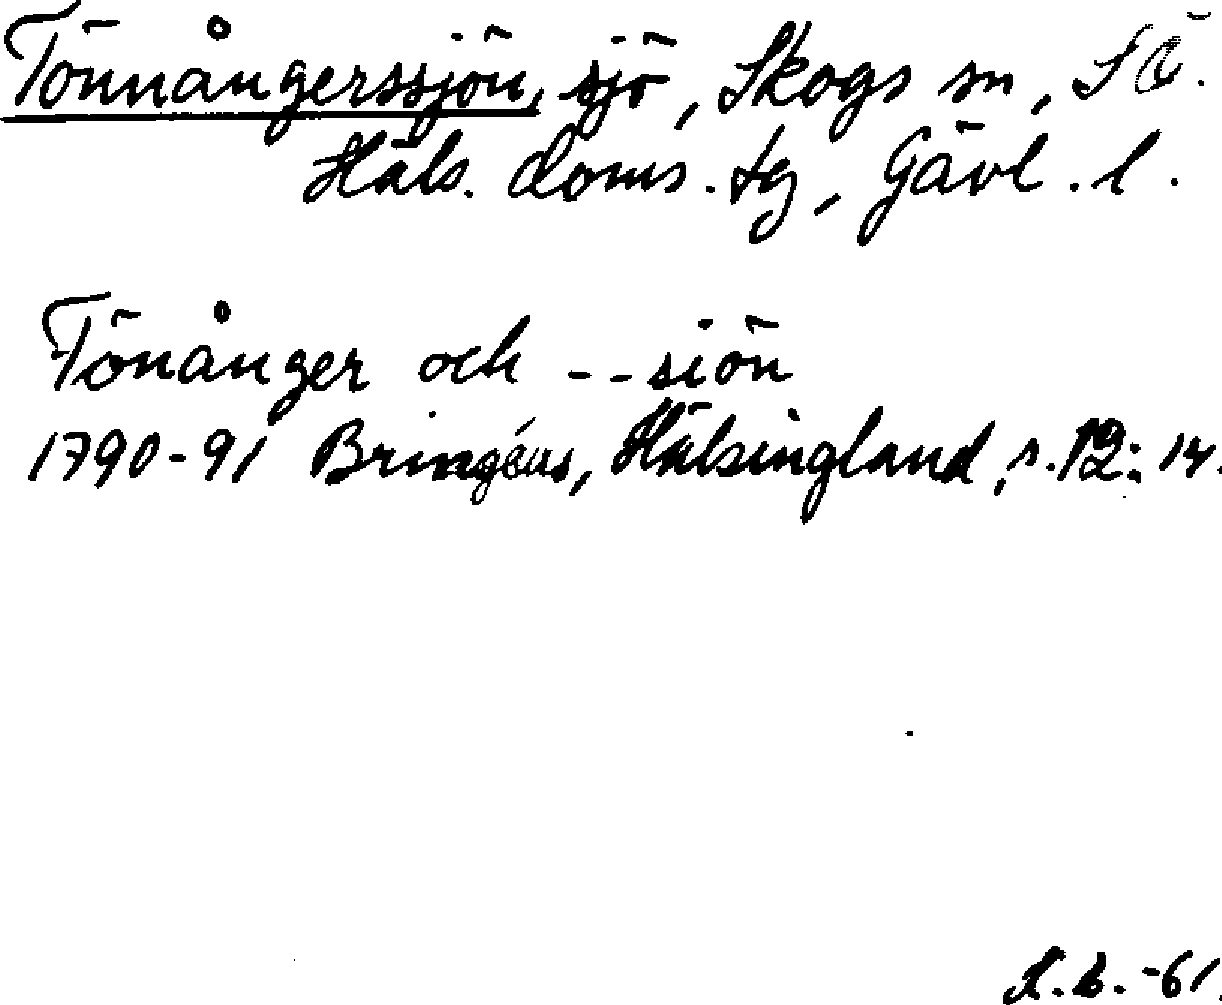 Tönnångerssjön, sjö, Skogs sn, SÖ.
Häls. doms. tg, Gävl. l.
Tönånger och -- siön
1790-91 Bringéus, Hälsingland, s. 12: 14.
K.B. -61.